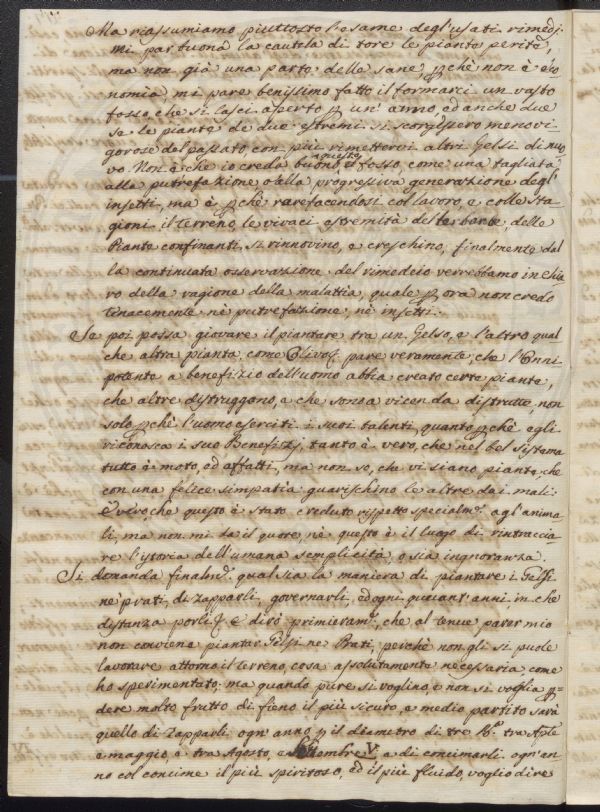 Ma riassumiamo piuttosto l'esame degl'usati rimedj.
mi par buona la cautela di tore le piante perite,
ma non già una parte delle sane, pchè non è eco
nomia, mi pare benissimo fatto il formarci un vasto
fosso, che si lasci aperto p un' anno, ed anche due
se le piante de due estremi si scorgessero meno vi
gorose del passato con più rimettervi altri Gelsi di nuo
vo. Non è che io creda buono questo fosso, come una tagliata
alla putrefazione, o alla progressiva generazione degl'
insetti, ma è pchè rarefacendosi col lavoro, e colle sta
gioni, il terreno, le vivaci estremità delle barbe, delle
Piante confinanti, si rinnovino, e creschino, finalmente dal
la continuata osservazione del rimedeio verrebbamo in chia
ro della ragione della malattia, quale p ora non credo
tenacemente nè putrefazione, nè insetti.
Se poi possa giovare il piantare tra un Gelso, e l'altro qual
che altra pianta, come Olivo? pare veramente, che l'Onni
potente a benefizio dell'uomo abbia creato certe piante,
che altre distruggono, e che sono a vicenda distrutte, non
solo pchè l'uomo eserciti i suoi talenti, quanto pchè egli
riconosca i suoi Benefizj, tanto è vero, che nel bel sistema
tutto è moto, ed affatti, ma non so, che vi siano piante, che
con una felice simpatia guarischino le altre dai mali:
È vero, che questo è stato creduto rispetto specialmte. agl'anima
li, ma non mi da il quore, nè questo è il luogo di rintraccia
re l'istoria dell'umana semplicità, o sia ingnoranza.
Si domanda finalmte. qual sia la maniera di piantare i Gelsi
ne prati, di zapparli, governarli, ed ogni quant' anni, in che
distanza porli? e dirò primieramte. che al tenue parer mio
non conviene piantar Gelsi ne Prati, perchè non gli si puole
lavorare attorno il terreno, cosa assolutamente necessaria come
ho sperimentato; ma quando pure si voglino, e non si voglia p=
dere molto frutto di fieno il più sicuro, e medio partito sarà
quello di Zapparli ogn' anno p il diametro di tre Ba. tra Aple
e maggio, e tra Agosto, e Settembre V. e di concimarli ogn'an
no col concime il più spiritoso, ed il più fluido, voglio dire